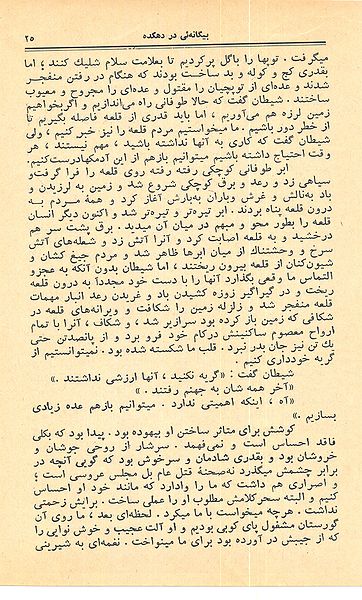 بیگانه‌ئی در دهکده ۲۵
میگرفت . توپها را باگل پرکردیم تا بعلامت سلام شلیك كنند ؛ اما
بقدری کج و کوله و بد ساخت بودند که هنگام در رفتن منفجر
شدند و عده‌ای از توپچیان را مقتول و عده‌ای را مجروح و معیوب
ساختند . شیطان گفت که حالا طوفانی راه می‌اندازیم و اگربخواهیم
زمین لرزه هم می‌آوریم ، اما باید قدری از قلعه فاصله بگیریم تا
از خطر دور باشیم . ما میخواستیم مردم قلعه را نیز خبر کنیم ، ولی
شیطان گفت که کاری به آنها نداشته باشید ، مهم نیستند ، هر
وقت احتیاج داشته باشیم میتوانیم بازهم از این آدمکهادرست‌کنیم.
ابر طوفانی کوچکی رفته رفته روی قلعه را فرا گرفت‌و
سیاهی زد و رعد و برق کوچکی شروع شد و زمین به لرزیدن و
باد به‌نالش و غرش وباران به‌بارش آغاز کرد و همهٔ مردم به
درون قلعه پناه بردند . ابر تیره‌تر و تیره‌تر شد و اکنون دیگر انسان
قلعه را بطور محو و مبهم در میان آن میدید . برق پشت سر هم
درخشید و به قلعه اصابت کرد و آنرا آتش زد و شعله‌های آتش
سرخ و وحشتناك از میان ابرها ظاهر شد و مردم جیغ کشان و
شیون‌کنان از قلعه بیرون ریختند ، اما شیطان بدون آنکه به عجزو
التماس ما وقعی بگذارد آنها را با دست خود مجدداً به درون قلعه
ریخت و در گیراگیر زوزه کشیدن باد و غریدن رعد انبار مهمات
قلعه منفجر شد و زلزله زمین را شکافت و ویرانه‌های قلعه در
شکافی که زمین باز کرده بود سرازیر شد ، و شکاف ، آنرا با تمام
ارواح معصوم ساکنینش درکام خود فرو برد و از پانصدتن حتی
یك تن نیز جان بدر نبرد . قلب ما شکسته شده بود . نمیتوانستیم از
گریه خودداری کنیم .
شیطان گفت : «گریه نکنید ، آنها ارزشی نداشتند .»
«آخر همه شان به جهنم رفتند . »
«آه ، اینکه اهمیتی ندارد . میتوانیم بازهم عده زیادی
بسازیم .»
کوشش برای متاثر ساختن او بیهوده بود . پیدا بود که بکلی
فاقد احساس است و نمی‌فهمد . سرشار از روحی جوشان و
خروشان بود و بقدری شادمان و سرخوش بود که گویی آنچه در
برابر چشمش میگذرد نه‌صحنهٔ قتل عام بل مجلس عروسی است ؛
و اصراری هم داشت که ما را وادارد که مانند خود او احساس
کنیم و البته سحرکلامش مطلوب او را عملی ساخت . برایش زحمتی
نداشت . هرچه میخواست با ما میکرد . لحظه‌ای بعد ، ما روی آن
گورستان مشغول پای کوبی بودیم و او آلت عجیب و خوش نوایی را
که از جیبش در آورده بود برای ما مینواخت . نغمه‌ای به شیرینی